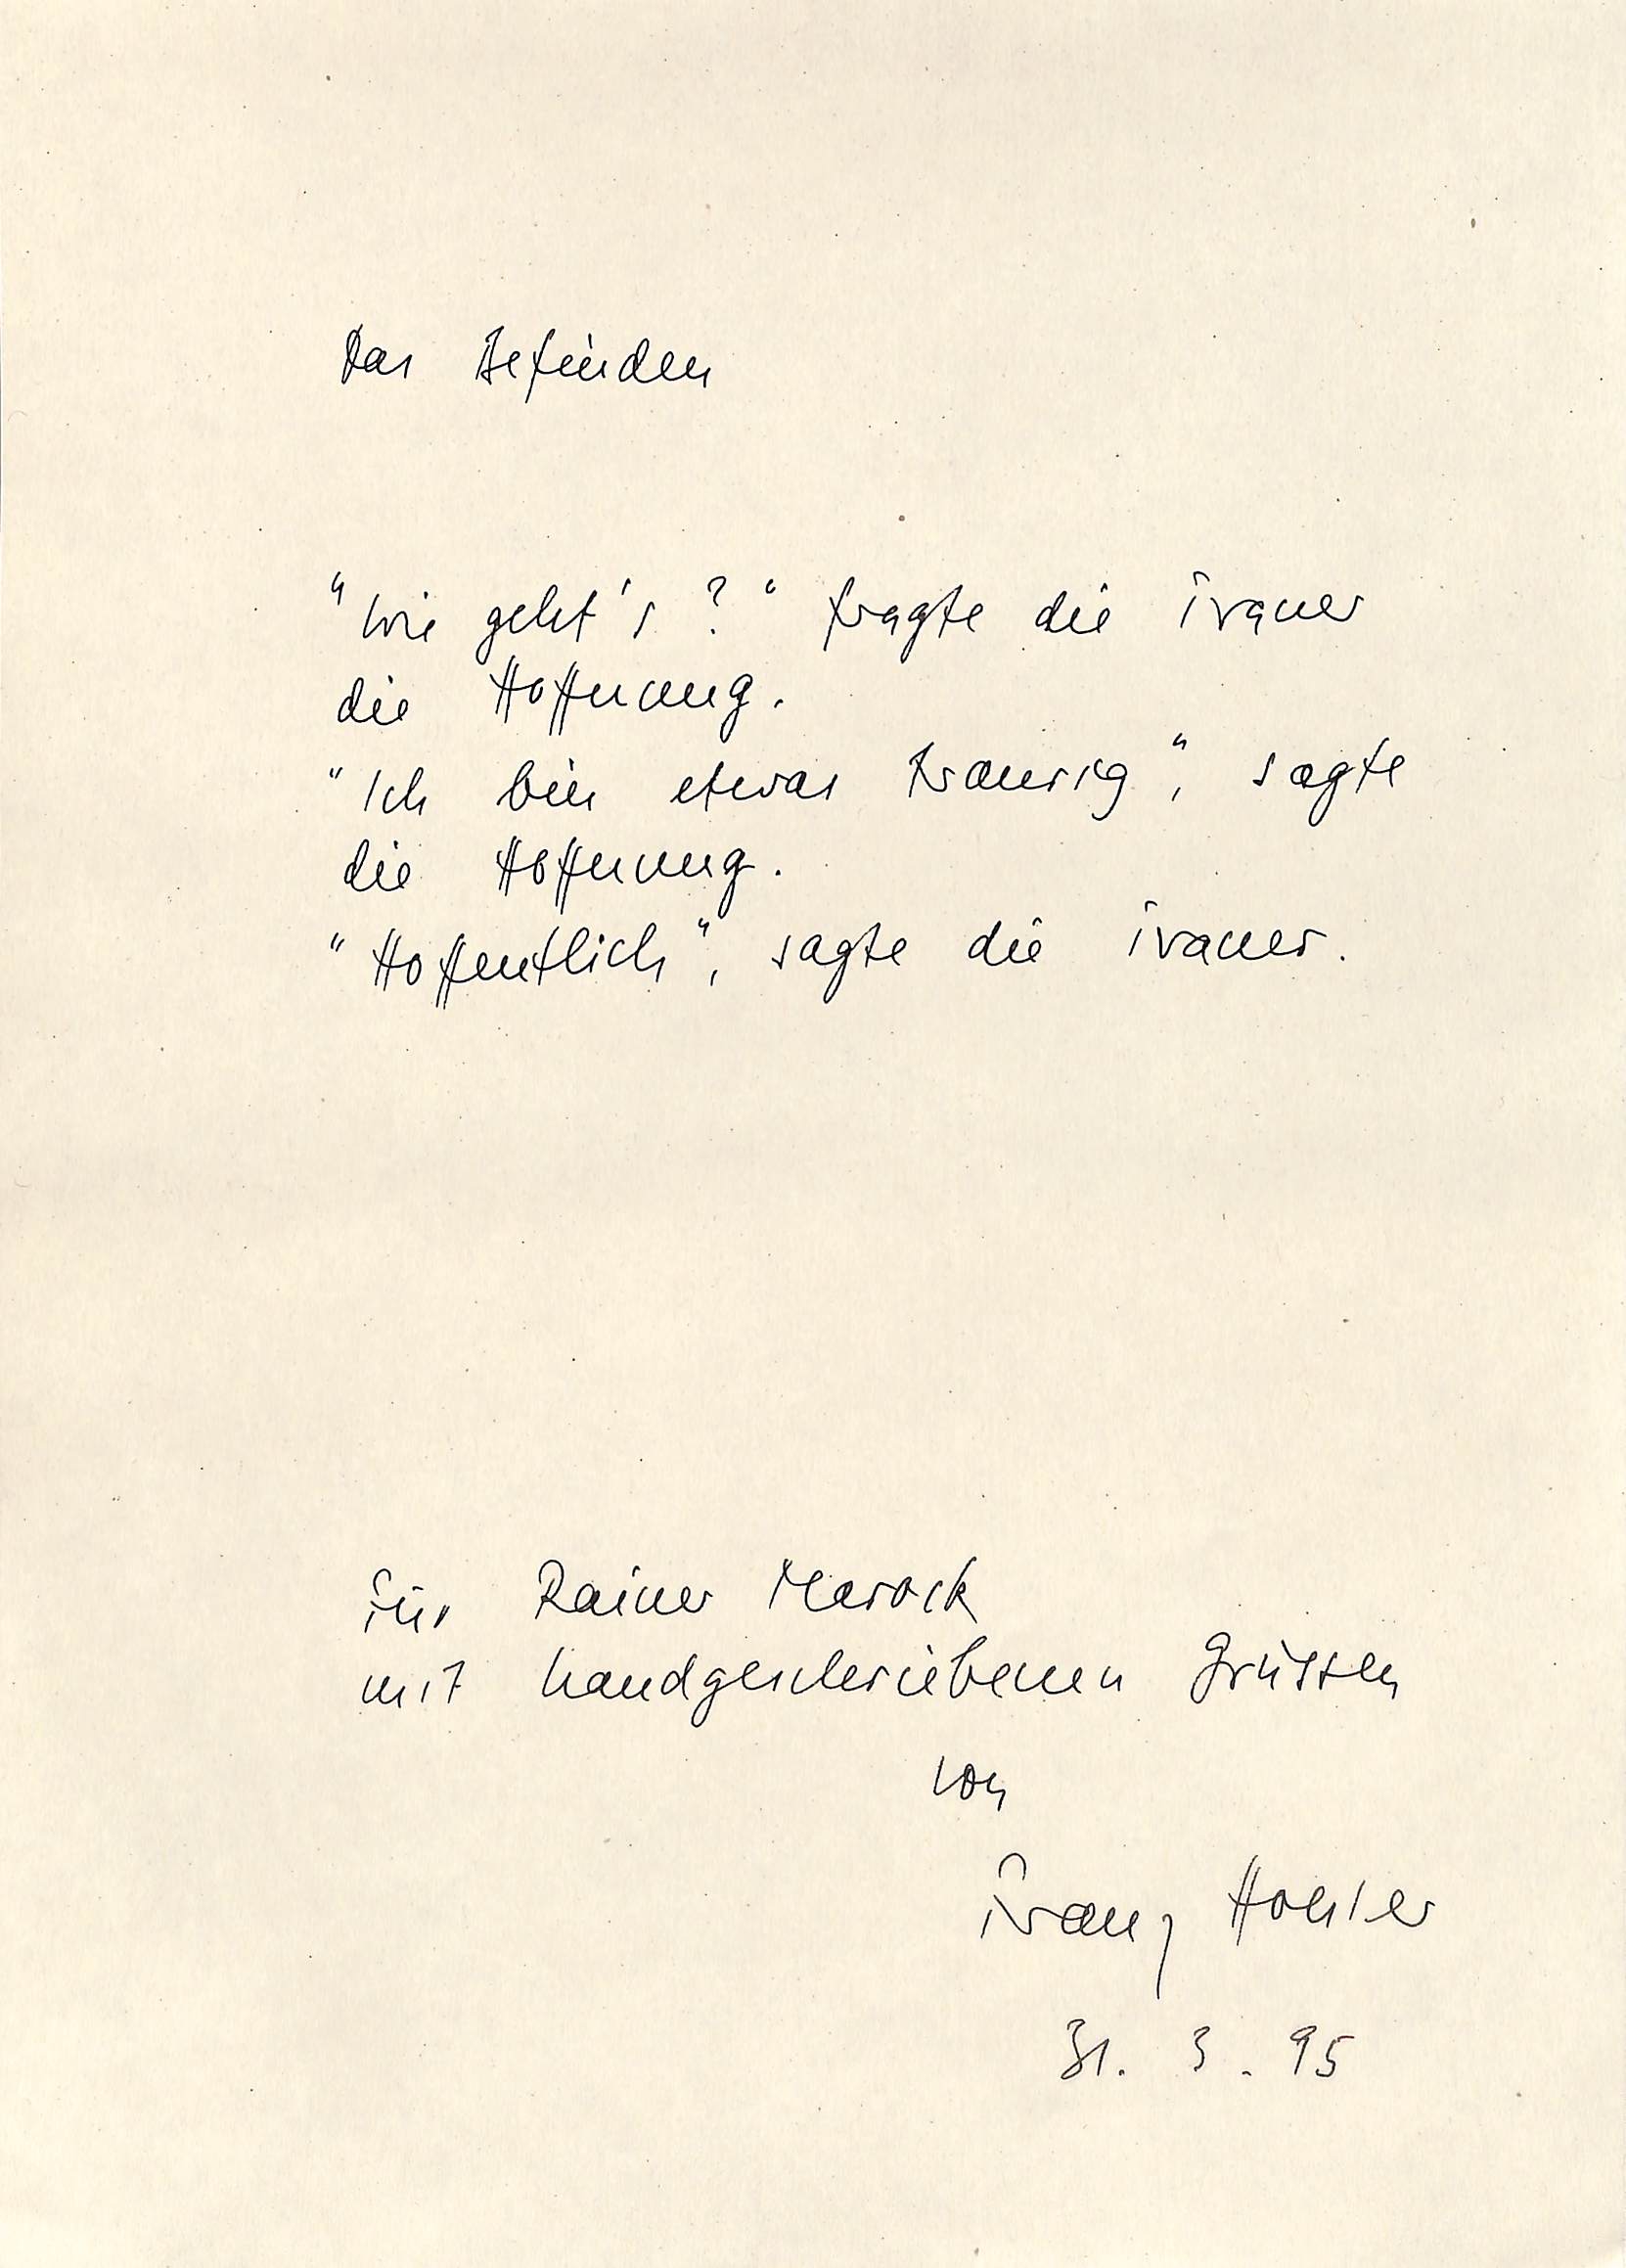 Das Befinden
"Wie geht's?" fragte die Trauer
die Hoffnung.
"Ich bin etwas traurig", sagte
die Hoffnung.
"Hoffentlich", sagte die Trauer.
Für Rainer Marock
mit handgeschriebenen Grüssen
von
Franz Hohler
31. 3. 95